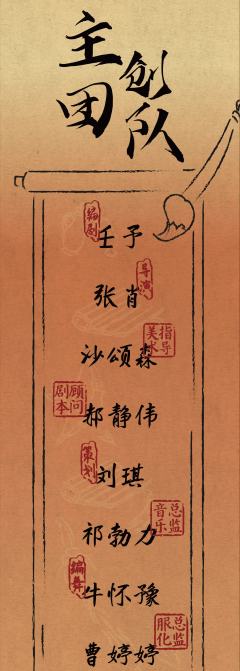 主创团队
编剧
壬予
导演
张肖
美术指导
沙颂森
剧本顾问
郝静伟
策划
刘琪
音乐总监
祁勃力
编舞
牛怀豫
服化总监
曹婷婷